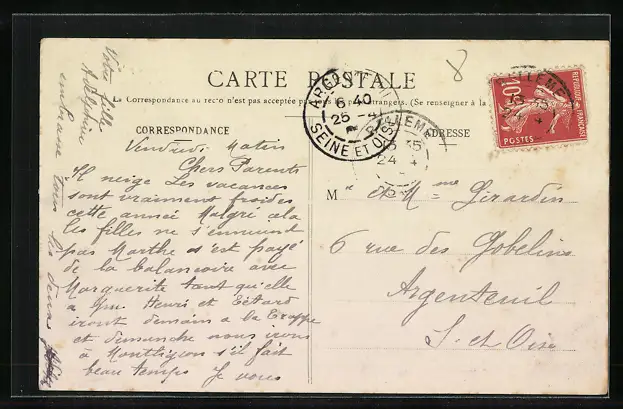 CARTE POSTALE
Correspondance au recto n'est pas acceptée par tous les pays étrangers. (Se renseigner à la
CORRESPONDANCE
ADRESSE
Vendredi Matin
Chers Parents
Il neige Les vacances
sont vraiment froides
cette année Malgré cela
les filles ne s'ennuient
pas Marthe s'est payé
de la balançoire avec
Marguerite tant qu'elle
a pu. Henri et
iront demain a la
et dimanche nous irons
à Montlignon s'il fait
beau temps Je vous
embrasse tous les deux
Votre fille
Adelphine
Mr et Mme Girardin
6 rue des Gobelins
Argenteuil
S. et Oise
ARGENTEUIL
6 40
25 - 4
SEINE ET OISE
24 4
10c
POSTES
8